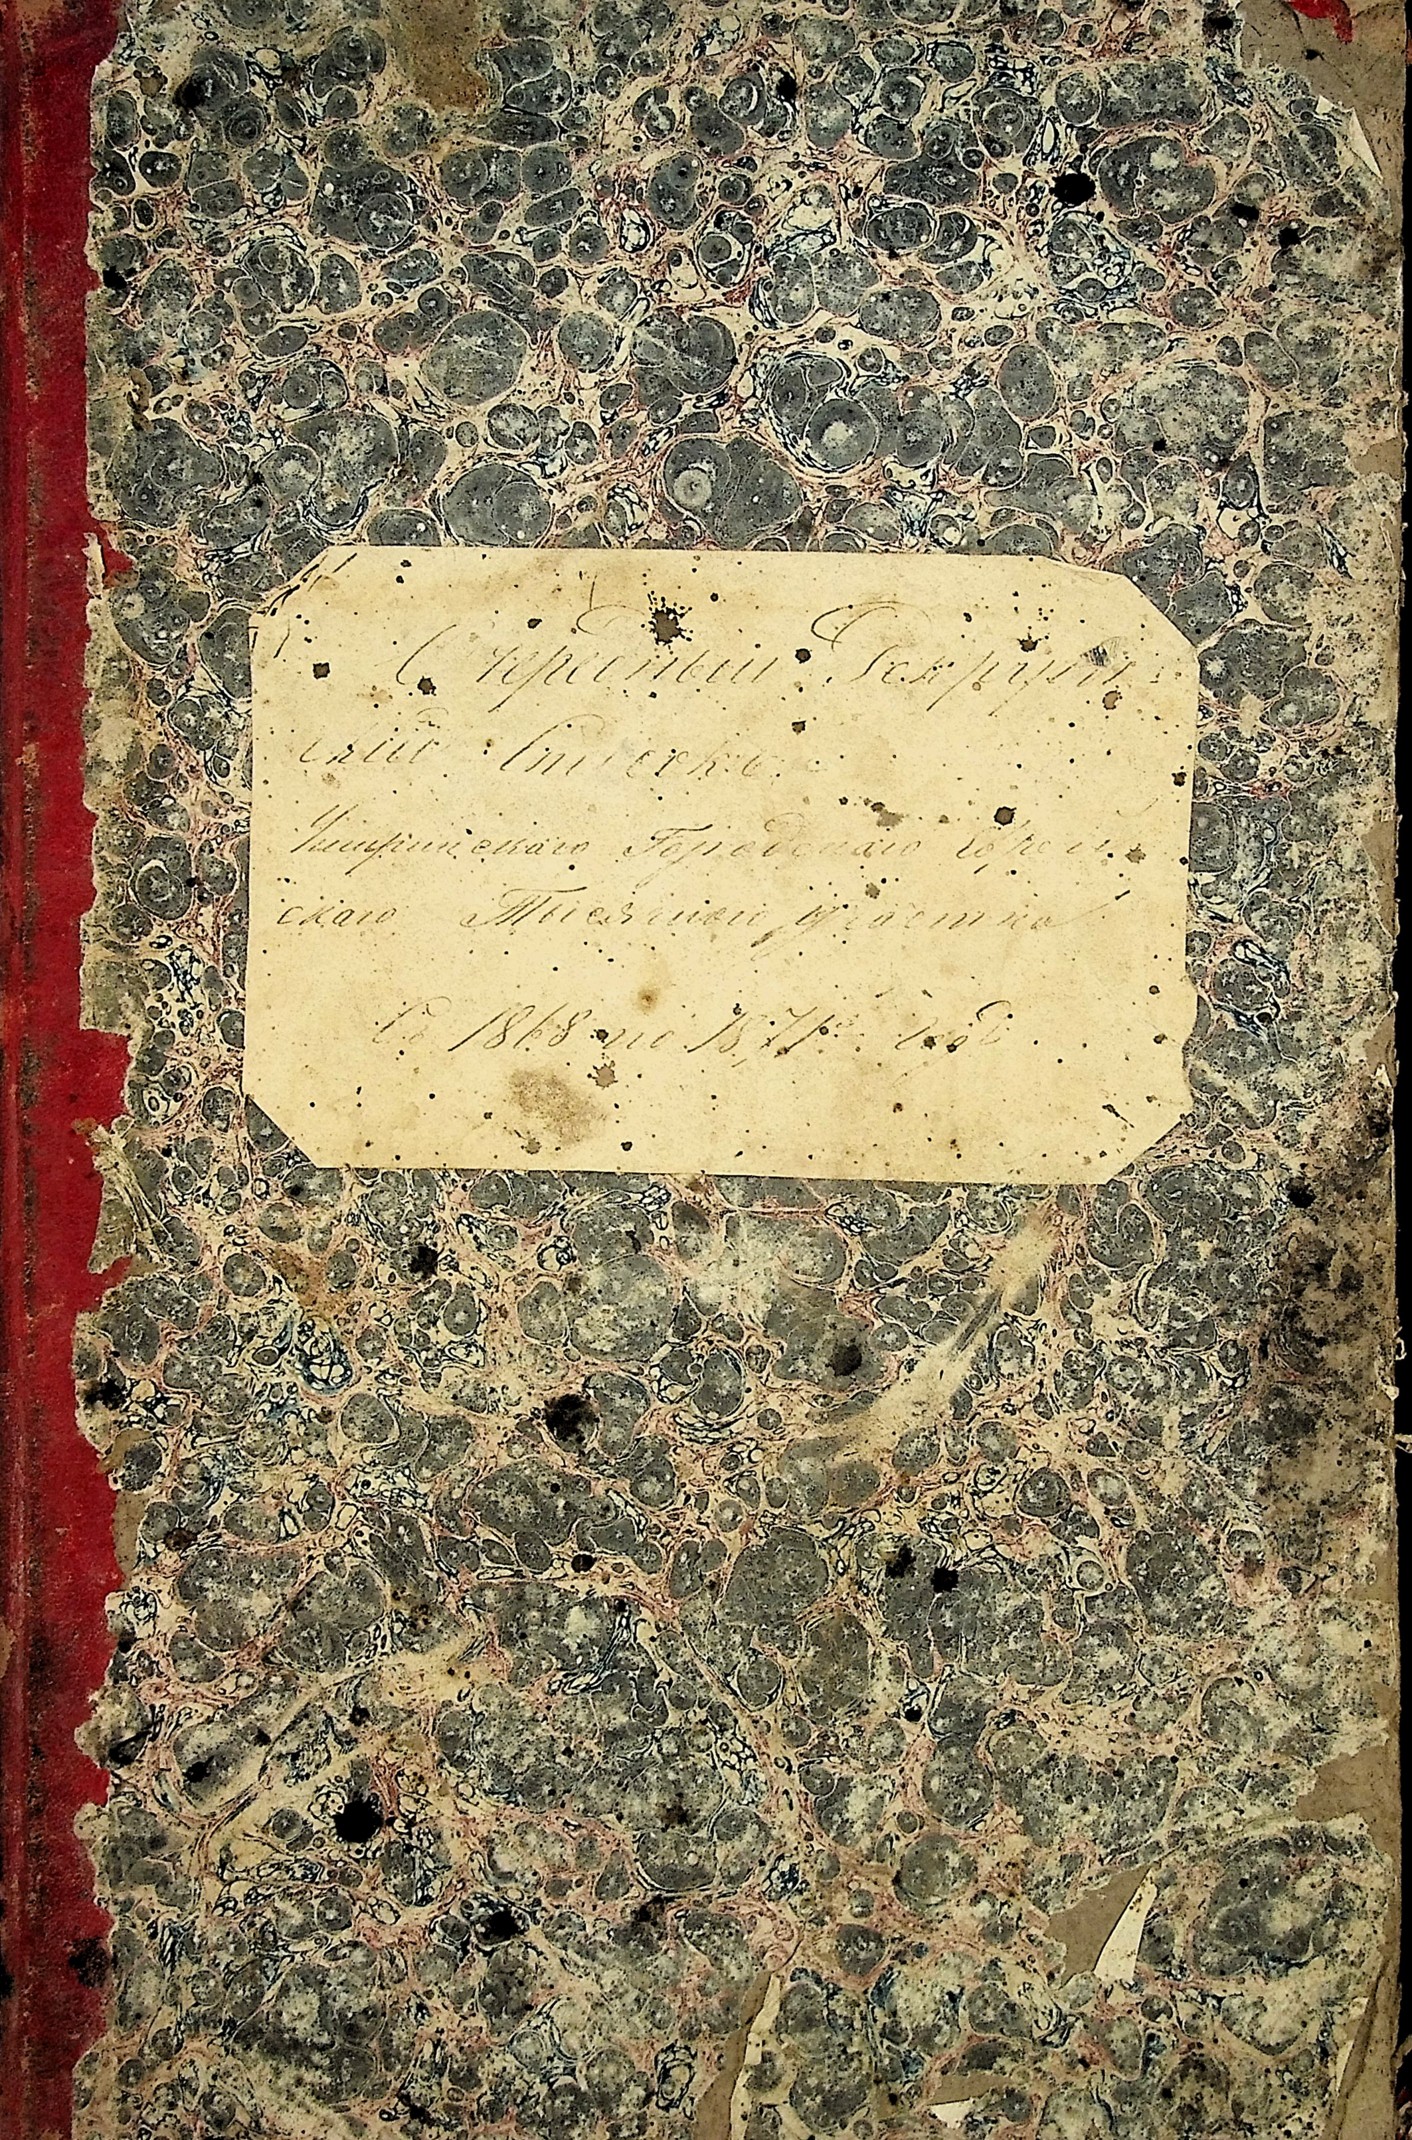 Очередный Рекрут-
скій Списокъ
Чигиринскаго Городскаго Еврей-
скаго Тысячнаго участка
Съ 1868 по 1871й годъ.